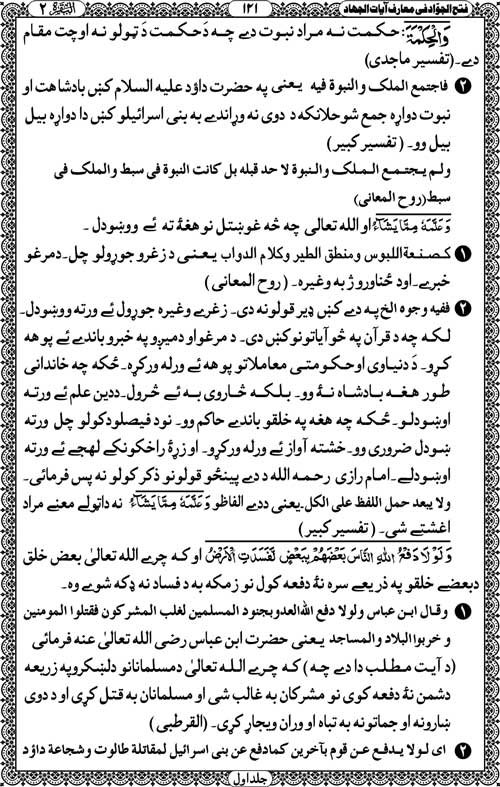 فتح الجوّاد فی معارف آیات الجهاد ۱۲۱ البقرة ۲
وَالْحِكْمَةَ: حکمت نه مراد نبوت دے چه دَ حکمت دَ ټولو نه اوچت مقام
دے۔(تفسیر ماجدی)
۲ فاجتمع الملک والنبوة فیه یعنی په حضرت داؤد علیه السلام کښ بادشاهت او
نبوت دواړه جمع شو حلانکه د دوی نه وړاندے به بنی اسرائیلو کښ دا دواړه بیل
بیل وو۔ (تفسیر کبیر)
ولم یجتمع الملک والنبوة لا حد قبله بل کانت النبوة فی سبط والملک فی
سبط (روح المعانی)
وَعَلَّمَهٗ مِمَّا يَشَآءُ او الله تعالی چه څه غوښتل نو هغهٔ ته ئے ووښودل ۔
۱ کصنعة اللبوس ومنطق الطیر وکلام الدواب یعنی د زغرو جوړولو چل۔ دمرغو
خبرے۔ اود ځناورو ژبه وغیره۔ (روح المعانی)
۲ ففیه وجوه الخ په دے کښ ډیر قولونه دی۔ زغرے وغیره جوړول ئے ورته ووښودل۔
لکه چه د قرآن په څو آیاتونو کښ دی۔ د مرغواو دمیږو په خبرو باندے ئے پوهه
کړو۔ دَ دنیاوی اوحکومتی معاملاتو پوهه ئے ورله ورکړه۔ ځکه چه خاندانی
طور هغه بادشاه نهٔ وو۔ بلکه څاروی به ئے څرول۔ ددین علم ئے ورته
اوښودلو۔ ځکه چه هغه په خلقو باندے حاکم وو۔ نود فیصلو دکولو چل ورته
ښودل ضروری وو۔ خښته آواز ئے ورله ورکړو۔ او زړهٔ راخکونکے لهجے ئے ورته
اوښودلے۔ امام رازی رحمه الله د دے پینځو قولونو ذکر کولو نه پس فرمائی۔
ولا یبعد حمل اللفظ علی الکل۔ یعنی ددے الفاظو وَعَلَّمَهٗ مِمَّا يَشَآءُ نه داټولے معنے مراد
اغشتے شی۔ (تفسیر کبیر)
وَلَوْلَا دَفْعُ اللهِ النَّاسَ بَعْضَهُمْ بِبَعْضٍ لَّفَسَدَتِ الْاَرْضُ او که چرے الله تعالیٰ بعض خلق
دبعضے خلقو په ذریعے سره نهٔ دفعه کول نو زمکه به د فساد نه ډکه شوے وه۔
۱ وقال ابن عباس ولولا دفع الله العدو بجنود المسلمین لغلب المشرکون فقتلوا المومنین
و خربوا البلاد والمساجد یعنی حضرت ابن عباس رضی الله تعالیٰ عنه فرمائی
(د آیت مطلب دا دے چه) که چرے الله تعالیٰ دمسلمانانو دلښکروپه زریعه
دشمن نهٔ دفعه کوی نو مشرکان به غالب شی او مسلمانان به قتل کړی او د دوی
ښارونه او جماتونه به تباه او وران ویجاړ کړی۔ (القرطبی)
۲ ای لولا یدفع عن قوم بآخرین کما دفع عن بنی اسرائیل لمقاتلة طالوت وشجاعة داؤد
جلد اول